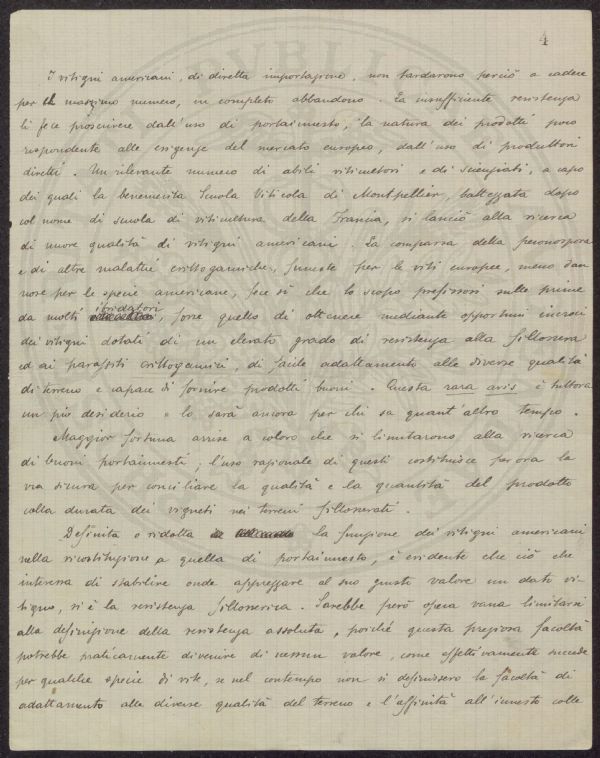 4
I vitigni americani, di diretta importazione, non tardarono perciò a cadere
per il massimo numero, in completo abbandono. La insufficiente resistenza
li fece proscrivere dall'uso di portainnesto, la natura dei prodotti poco
rispondente alle esigenze del mercato europeo, dall'uso di produttori
diretti. Un rilevante numero di abili viticultori e di scienziati, a capo
dei quali la benemerita Scuola Viticola di Montpellier, battezzata dopo
col nome di scuola di viticultura della Francia, si lanciò alla ricerca
di nuove qualità di vitigni americani. La comparsa della peronospora
e di altre malattie crittogamiche, funeste per le viti europee, meno dan
nose per le specie americane, fece sì che lo scopo prefissosi sulle prime
da molti ibridatori, fosse quello di ottenere mediante opportuni incroci
dei vitigni dotati di un elevato grado di resistenza alla fillossera
ed ai parassiti crittogamici, di facile adattamento alle diverse qualità
di terreno e capace di fornire prodotti buoni. Questa rara avis è tuttora
un pio desiderio e lo sarà ancora per chi sa quant'altro tempo.
Maggior fortuna arrise a coloro che si limitarono alla ricerca
di buoni portainnesti; l'uso razionale di questi costituisce per ora la
via sicura per conciliare la qualità e la quantità del prodotto
colla durata dei vigneti nei terreni fillosserati.
Definita o ridotta la funzione dei vitigni americani
nella ricostituzione a quella di portainnesto, è evidente che ciò che
interessa di stabilire onde apprezzare al suo giusto valore un dato vi-
tigno, si è la resistenza fillosserica. Sarebbe però opera vana limitarsi
alla definizione della resistenza assoluta, poichè questa preziosa facoltà
potrebbe praticamente divenire di nessun valore, come effettivamente succede
per qualche specie di vite, se nel contempo non si definissero la facoltà di
adattamento alle diverse qualità del terreno e l'affinità all'innesto colle